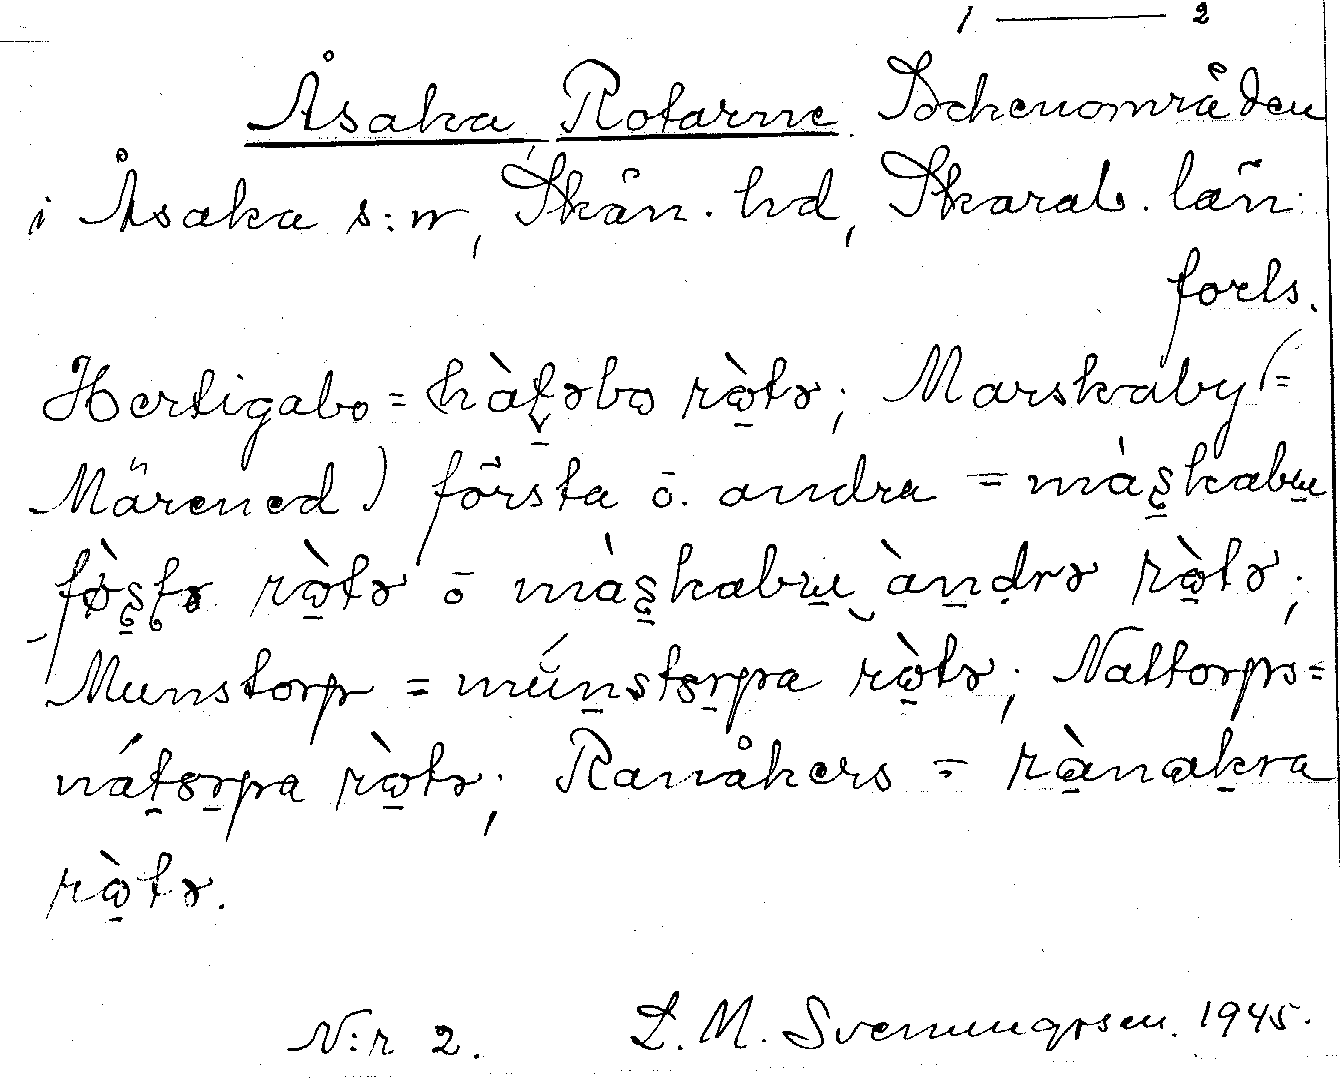 1 — 2
Åsaka Rotarne. Sockenområden
i Åsaka s:n, Skån. hd, Skarab. län.
forts.
Hertigabo = hàt̠əbɷ rɷ̀tə; Marskaby (=
Märened) första o. andra = màʂkabɯ
fø̀ʂtə rɷ̀tə o màʂkabɯ àndrə rɷ̀tə;
Munstorp = múnstɞrpa rɷ̀tə; Nattorps =
nátɞrpa rɷ̀tə; Ranåkers = rànakra
rɷ̀tə.
N:r 2. L. M. Svenungsson. 1945.